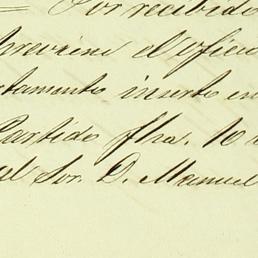 = Por recibido
previene el oficio
rtamento inserto en
Partido fha. 10
el Sor. D. Manuel